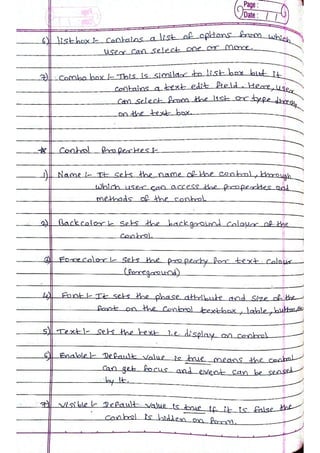 Page :
Date : / /
6) listbox :- contains a list of options from which
user can select one or more.
7) Combo box :- This is similar to list box but it
contains a text edit field. Here, user
can select from the list or type directly
on the text box.
* Control Properties :-
1) Name :- It sets the name of the control, through
which user can access the properties and
methods of the control
2) Backcolor :- sets the background colour of the
control.
3) Forecolor :- sets the property for text colour
(foreground)
4) Font :- It sets the phase attribute and size of the
font on the control textbox, lable, button
5) Text :- sets the text i.e display on control
6) Enable :- Default value is true means the control
can get focus and event can be sensed
by it.
7) Visible :- Default value is true if it is false the
control is hidden on form.